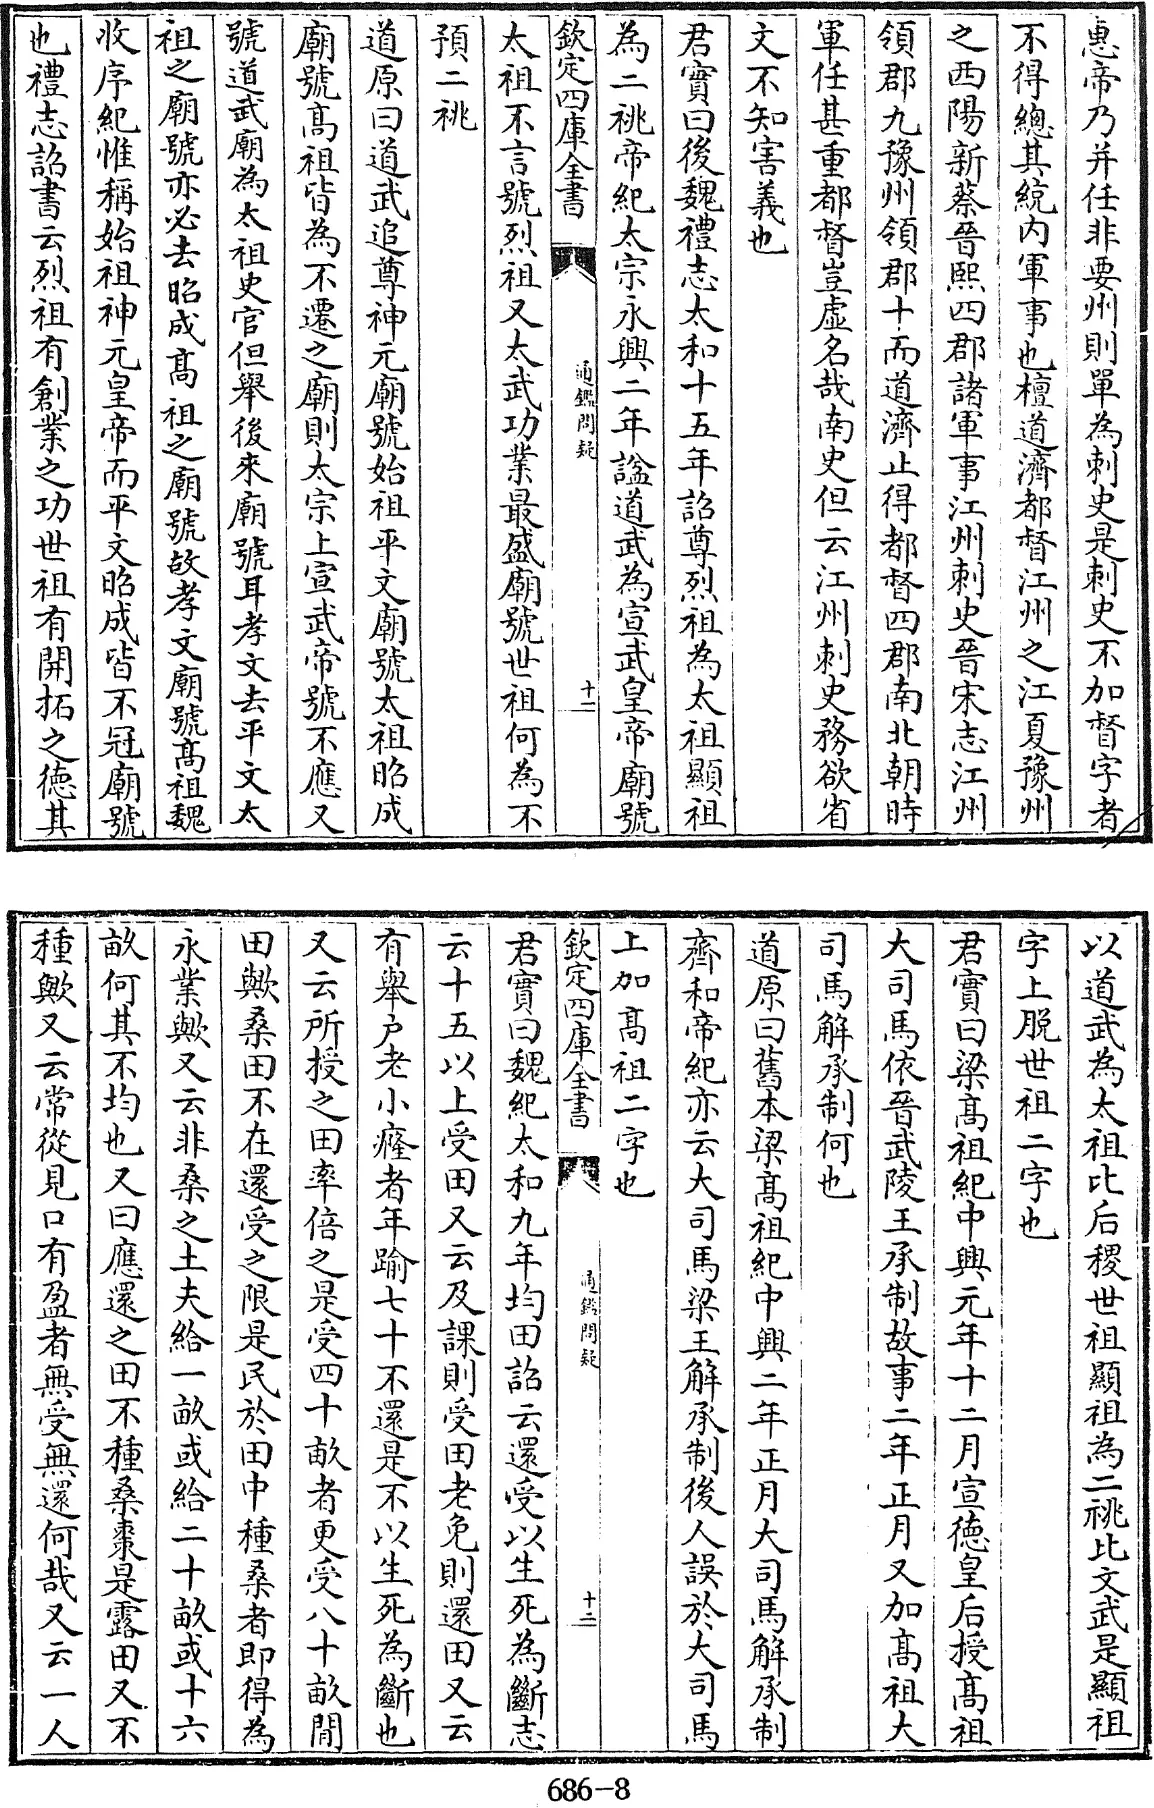 惠帝乃并任非要州則單為刺史是刺史不加督字者
不得總其統内軍事也檀道濟都督江州之江夏豫州
之西陽新蔡晉熙四郡諸軍事江州刺史晉宋志江州
領郡九豫州領郡十而道濟止得都督四郡南北朝時
軍任甚重都督豈虚名哉南史但云江州刺史務欲省
文不知害義也
君實曰後魏禮志太和十五年詔尊烈祖為太祖顯祖
為二祧帝紀太宗永興二年諡道武為宣武皇帝廟號
欽定四庫全書
通鑑問疑
十二
太祖不言號烈祖又太武功業最盛廟號世祖何為不
預二祧
道原曰道武追尊神元廟號始祖平文廟號太祖昭成
廟號髙祖皆為不遷之廟則太宗上宣武帝號不應又
號道武廟為太祖史官但舉後來廟號耳孝文去平文太
祖之廟號亦必去昭成髙祖之廟號故孝文廟號髙祖魏
收序紀惟稱始祖神元皇帝而平文昭成皆不冠廟號
也禮志詔書云烈祖有創業之功世祖有開拓之德其
以道武為太祖比后稷世祖顯祖為二祧比文武是顯祖
字上脱世祖二字也
君實曰梁髙祖紀中興元年十二月宣德皇后授髙祖
大司馬依晉武陵王承制故事二年正月又加髙祖大
司馬解承制何也
道原曰舊本梁髙祖紀中興二年正月大司馬解承制
齊和帝紀亦云大司馬梁王解承制後人誤於大司馬
上加髙祖二字也
欽定四庫全書
通鑑問疑
十二
君實曰魏紀太和九年均田詔云還受以生死為斷志
云十五以上受田又云及課則受田老免則還田又云
有舉户老小癃者年踰七十不還是不以生死為斷也
又云所授之田率倍之是受四十畝者更受八十畝間
田歟桑田不在還受之限是民於田中種桑者即得為
永業歟又云非桑之土夫給一畝或給二十畝或十六
畝何其不均也又曰應還之田不種桑棗是露田又不
種歟又云常從見口有盈者無受無還何哉又云一人
686-8